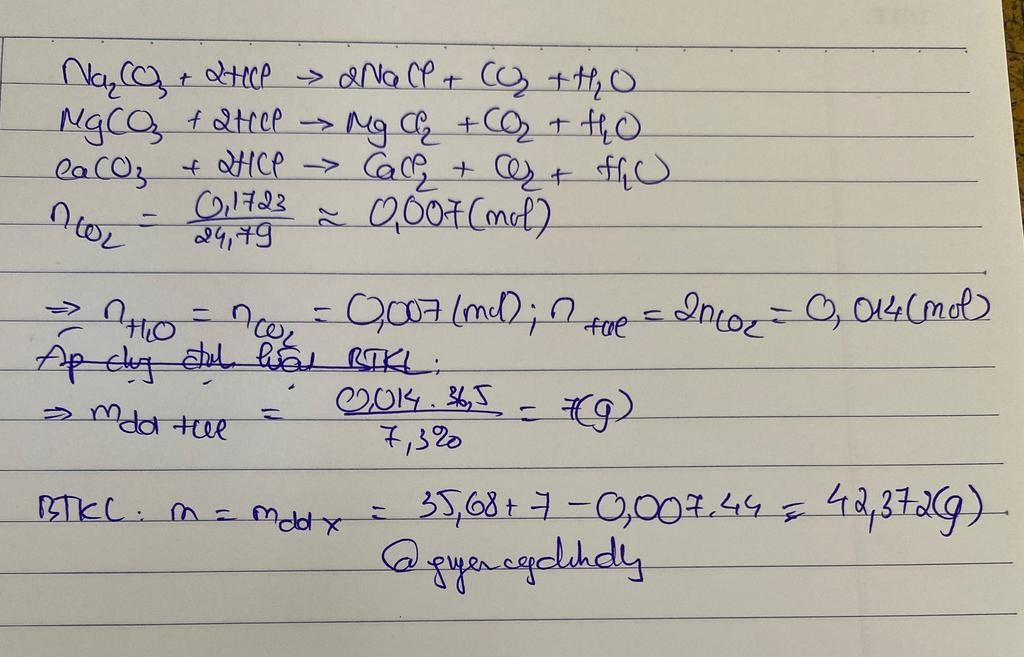 Na₂CO₃ + 2HCl → 2NaCl + CO₂ + H₂O
MgCO₃ + 2HCl → MgCl₂ + CO₂ + H₂O
CaCO₃ + 2HCl → CaCl₂ + CO₂ + H₂O
n_CO₂ = 0,1723/24,79 ≈ 0,007(mol)
⇒ n_H₂O = n_CO₂ = 0,007(mol); n_HCl = 2n_CO₂ = 0,014(mol)
Áp dụng định luật BTKL:
⇒ m_dd HCl = 0,014 . 36,5/7,3% = 7(g)
BTKL: m = m_dd X = 35,68 + 7 - 0,007.44 = 42,372(g)